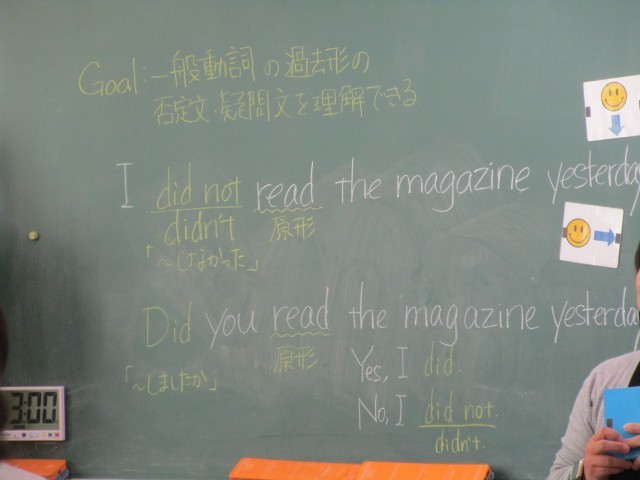 Goal: 一般動詞の過去形の
否定文・疑問文を理解できる
I did not read the magazine yesterday
didn't 原形
「～しなかった」
Did you read the magazine yesterday
「～しましたか」 原形
Yes, I did.
No, I did not.
didn't.
3:00